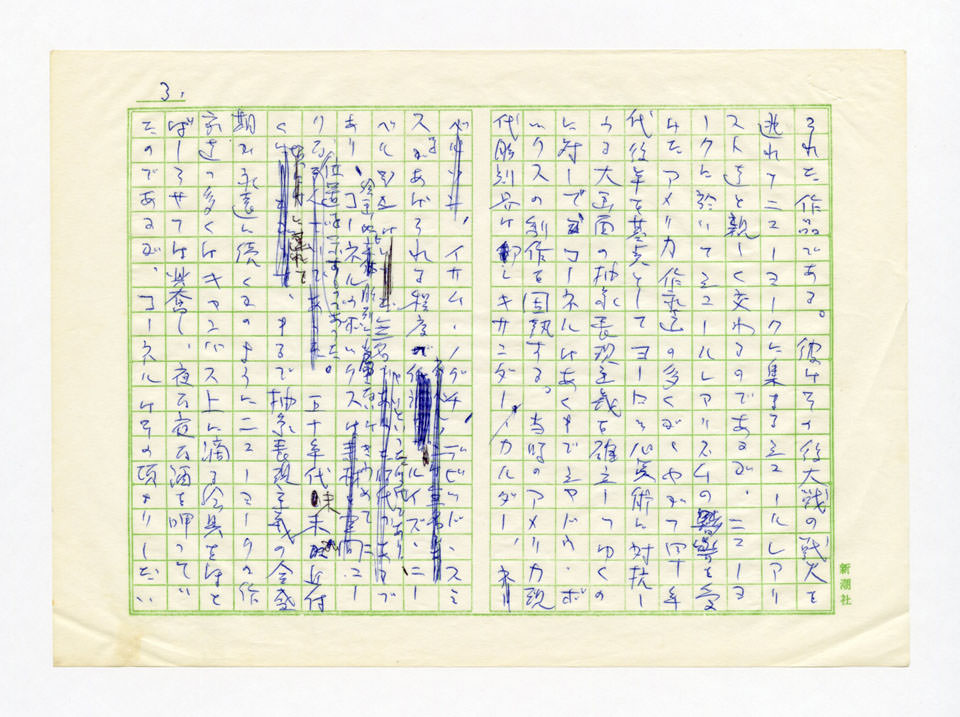 3.
された作品である。彼はその後大戦の戦火を
逃れてニューヨークに集まるシュールレアリ
ストたちと親しく交わるのであるが、ニューヨ
ークに於いてシュールレアリスムの影響を受
けたアメリカ作家達の多くがやがて四十年
代後半を基点としてヨーロッパ美術に対抗し
うる大画面の抽象表現主義を確立してゆくの
に対してコーネルはあくまでもシャドウ・ボ
ックスの制作を固執する。当時のアメリカ現
代彫刻界は アレキサンダー・カルダー、
イサム・ノグチ、デビッド・スミ
スがあげられる程度で ルイズ・ニー
ベルスン
あり コーネルのボックスは
位置
。五十年代末 近付
く 、まるで抽象表現主義の全盛
期が永遠に続くかのようにニューヨークの作
家達の多くはキャンバス上に滴る絵具をほと
ばしらせては興奮し、夜な夜な酒を呷ってい
たのであるが、コーネルはその頃よりしだい
新潮社